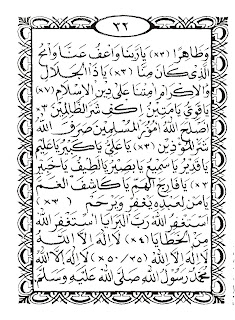 ٢٢
وَظَاهِرًا (٣×) يَا رَبَّنَا وَاعْفُ عَنَّا وَامْحُ
الَّذِي كَانَ مِنَّا (٣×) يَا ذَا الْجَلَالِ
وَالْإِكْرَامِ أَمِتْنَا عَلَى دِينِ الْإِسْلَامِ (٧×)
يَا قَوِيُّ يَا مَتِينُ إِكْفِ شَرَّ الظَّالِمِينَ (٣×)
أَصْلَحَ اللهُ أُمُورَ الْمُسْلِمِينَ صَرَفَ اللهُ
شَرَّ الْمُؤْذِينَ (٣×) يَا عَلِيُّ يَا كَبِيرُ يَا عَلِيمُ
يَا قَدِيرُ يَا سَمِيعُ يَا بَصِيرُ يَا لَطِيفُ يَا خَبِيرُ
(٣×) يَا فَارِجَ الْهَمِّ يَا كَاشِفَ الْغَمِّ
يَا مَنْ لِعَبْدِهِ يَغْفِرُ وَيَرْحَمُ (٣×)
اَسْتَغْفِرُ اللهَ رَبَّ الْبَرَايَا اَسْتَغْفِرُ اللهَ
مِنَ الْخَطَايَا (٤×) لَا إِلٰهَ إِلَّا اللهُ
لَا إِلٰهَ إِلَّا اللهُ (٥٠/٢٥×) لَا إِلٰهَ إِلَّا اللهُ
مُحَمَّدٌ رَسُولُ اللهِ صَلَّى اللهُ عَلَيْهِ وَسَلَّمَ